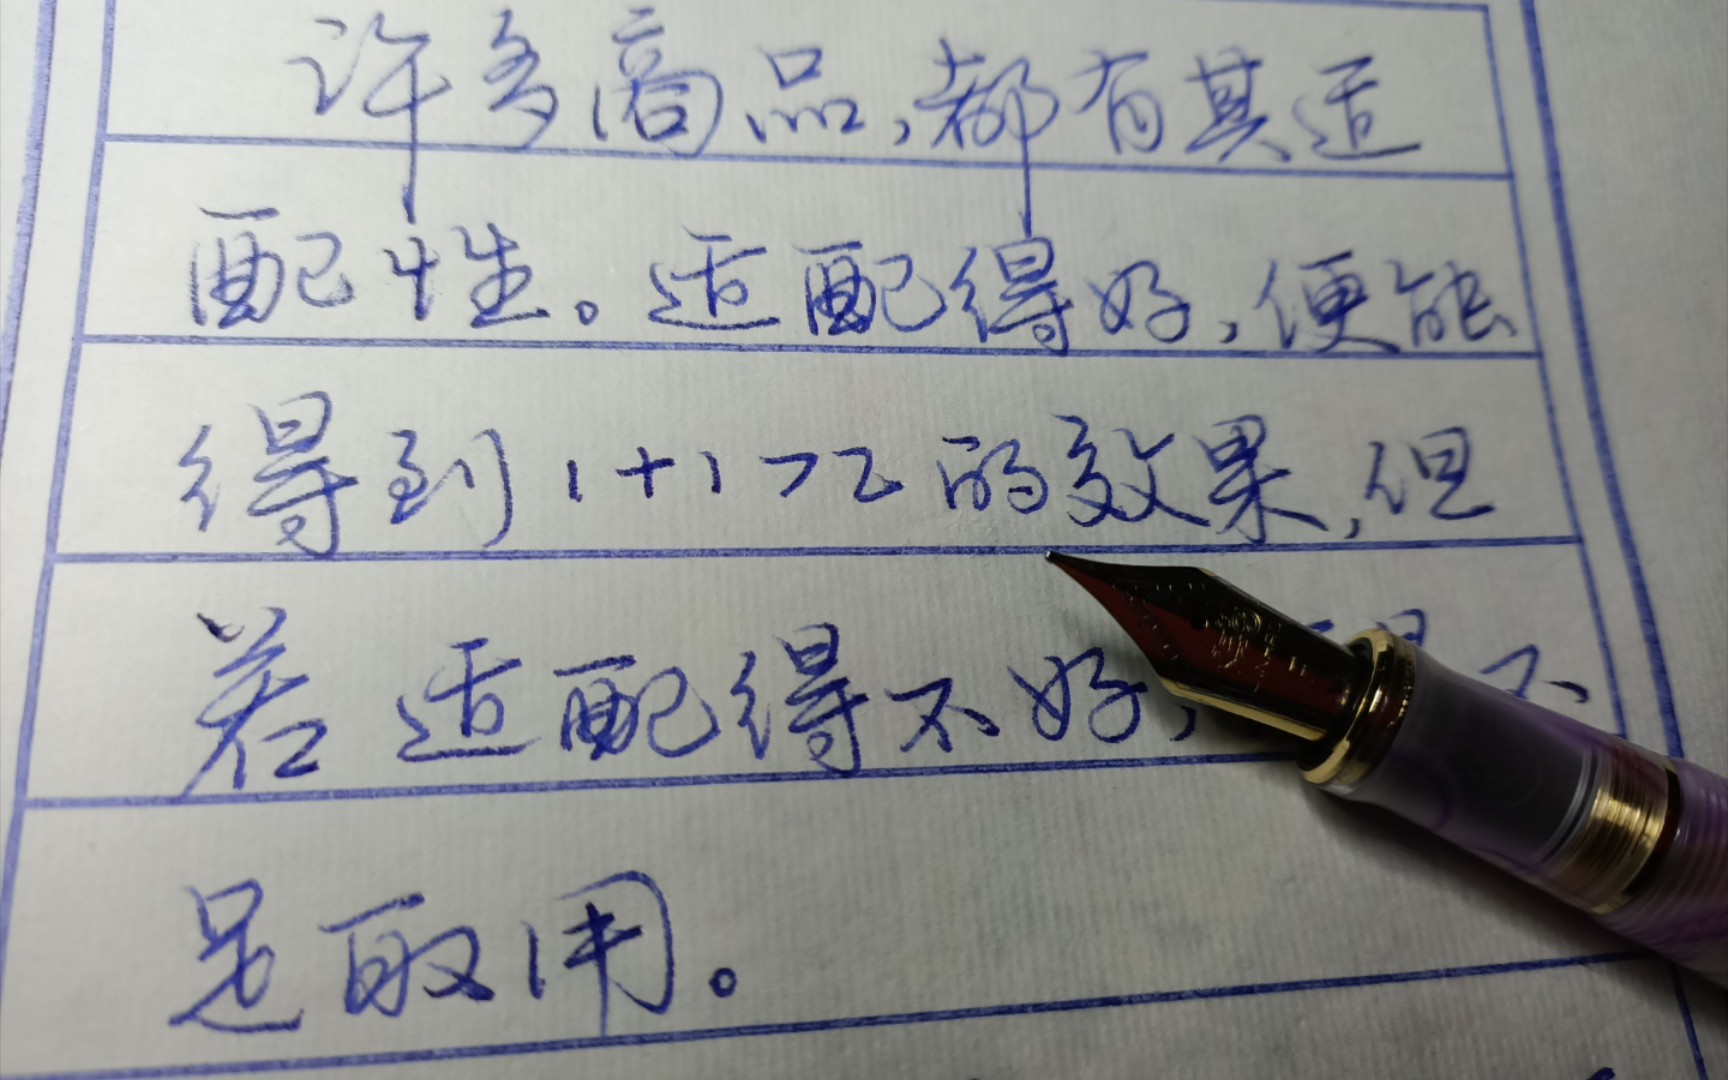 许多商品,都有其适
配性。适配得好,便能
得到1+1>2的效果,但
若适配得不好,不
足取用。